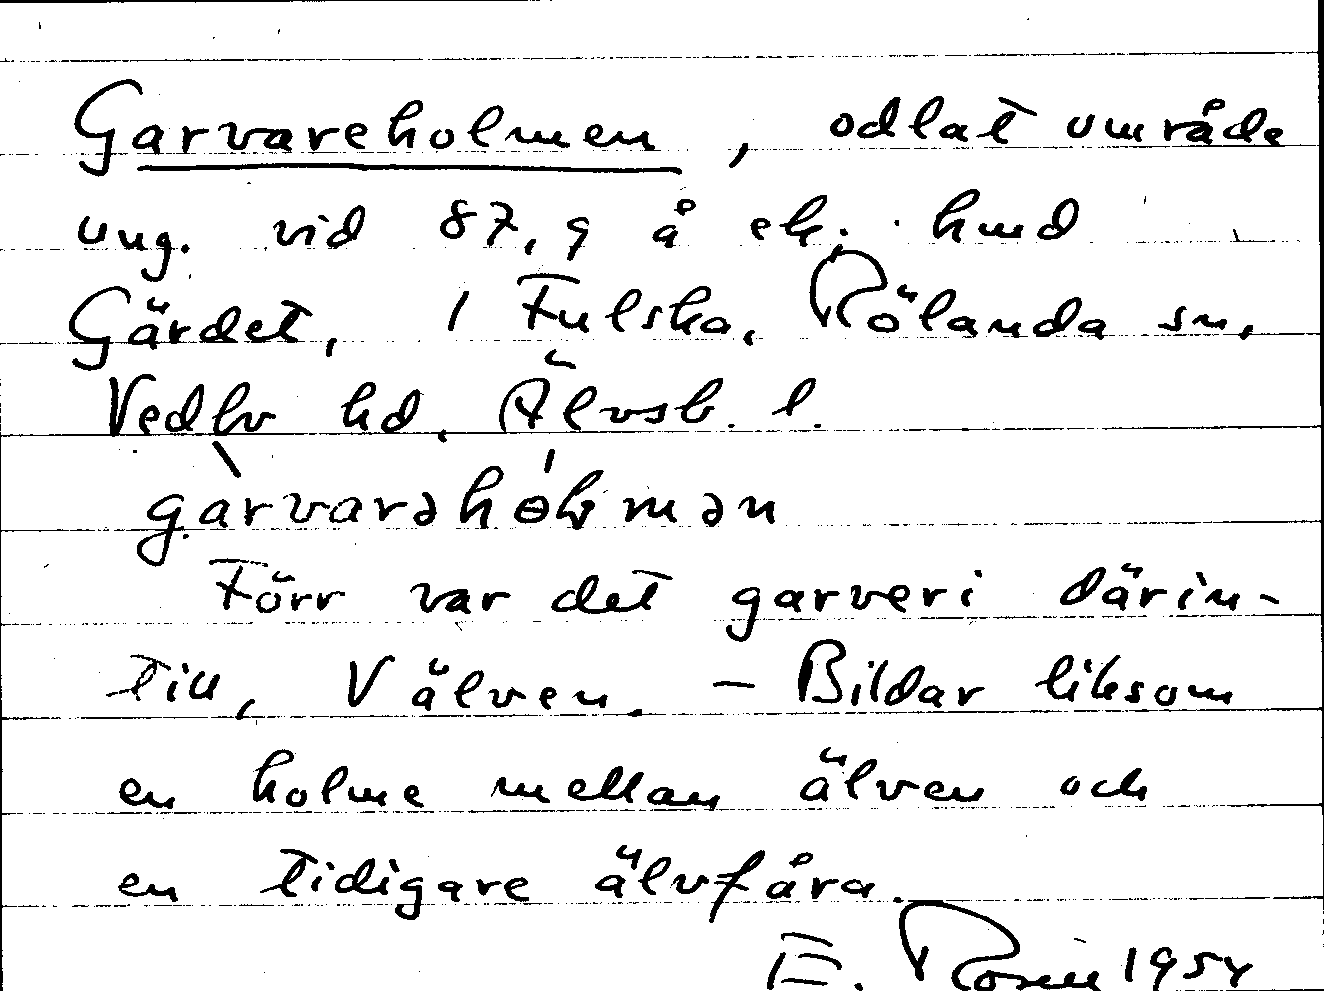 Garvareholmen, odlat område
ung. vid 87,9 å ek. hmd
Gärdet, 1 Fulska, Rölanda sn,
Vedbo hd. Älvsb. l.
gàrvarəhólmən
Förr var det garveri därin-
till, V älven. – Bildar liksom
en holme mellan älven och
en tidigare älvfåra.
E. Rosén 1954